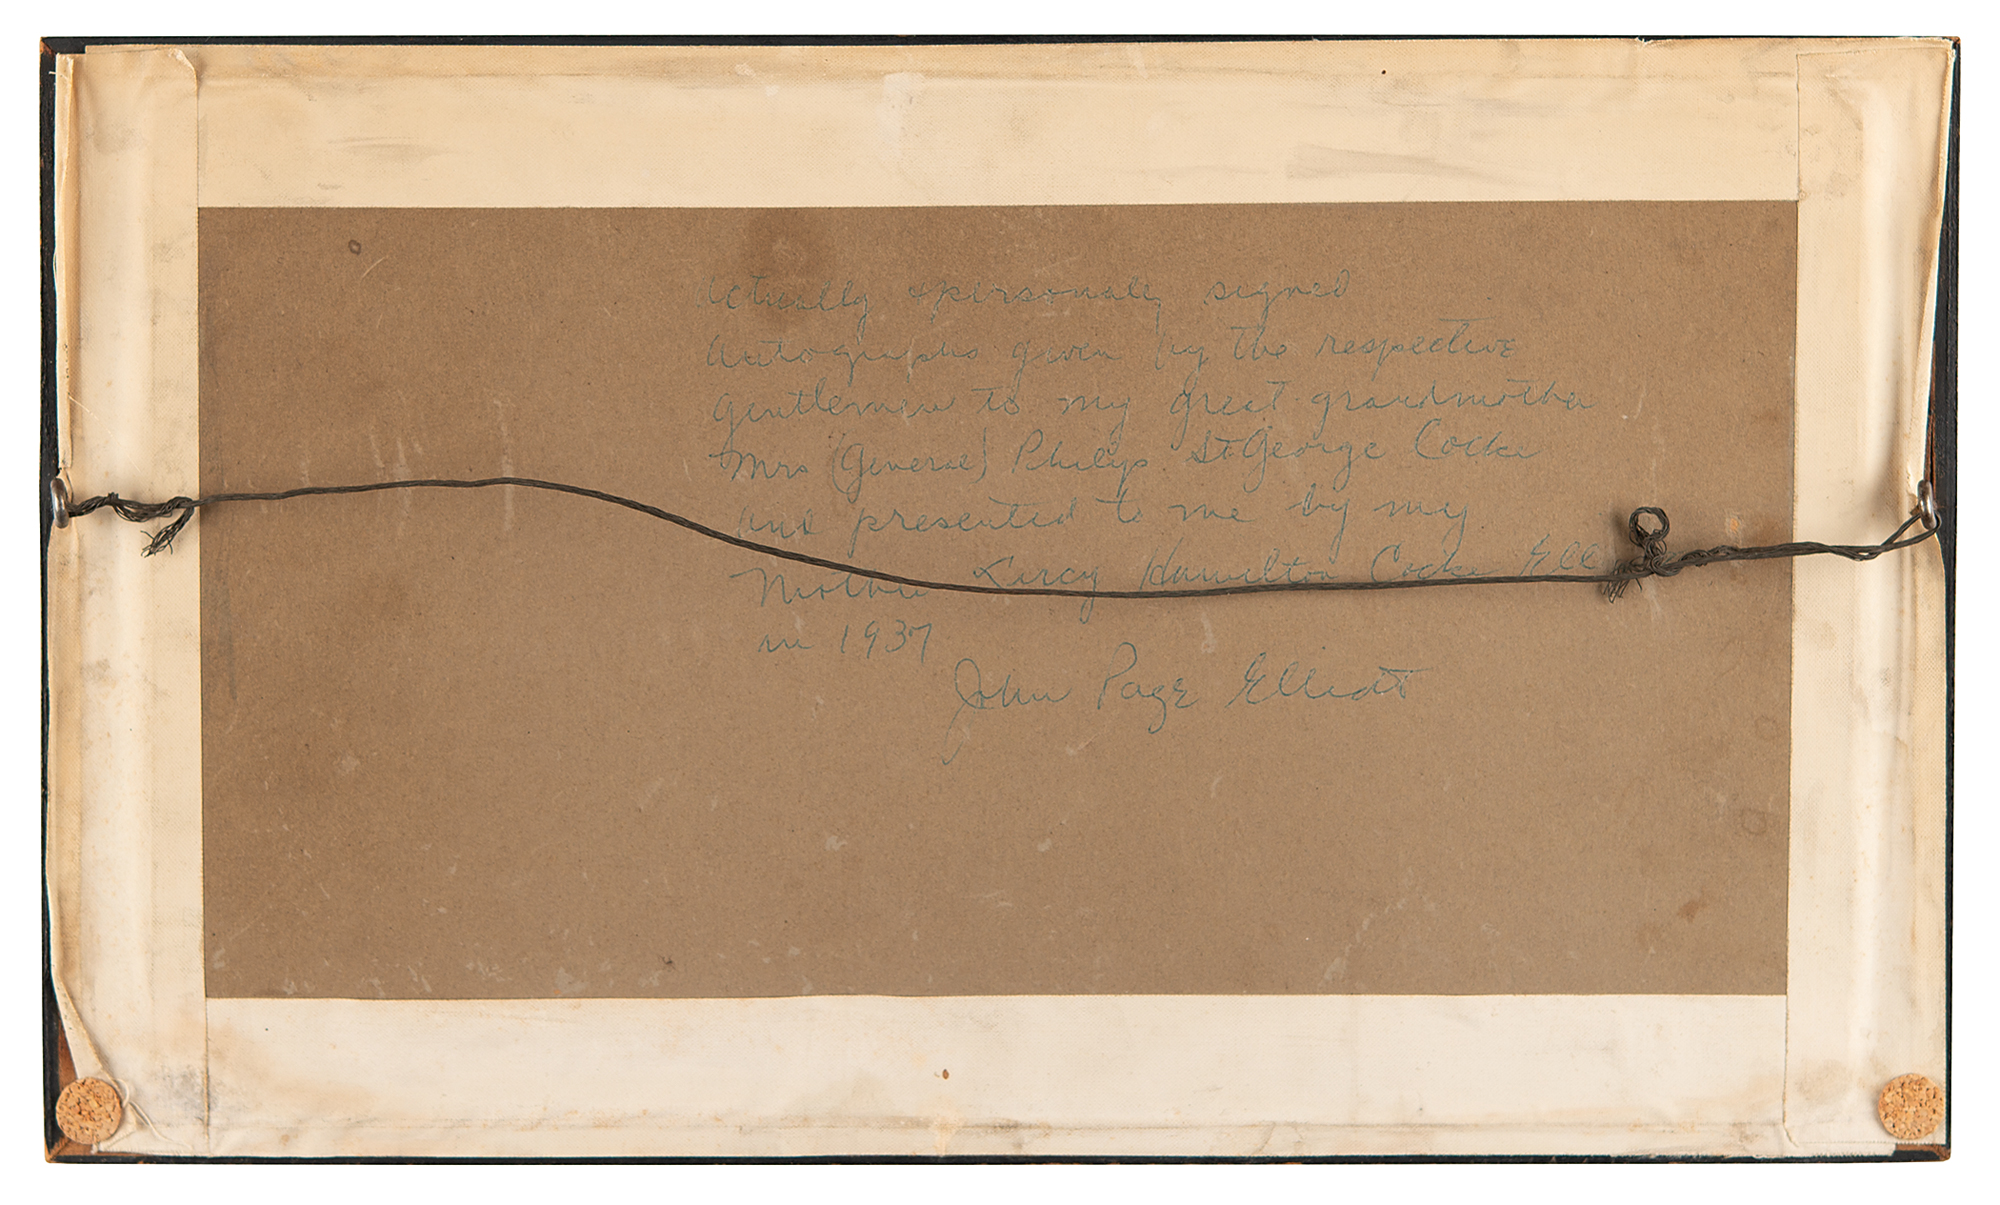 Actually & personally signed
autographs given by the respective
gentlemen to my great grandmother
Mrs (General) Philip St George Cocke
and presented to me by my
Mother Lucy Hamilton Cocke Ell
in 1937
John Page Elliott